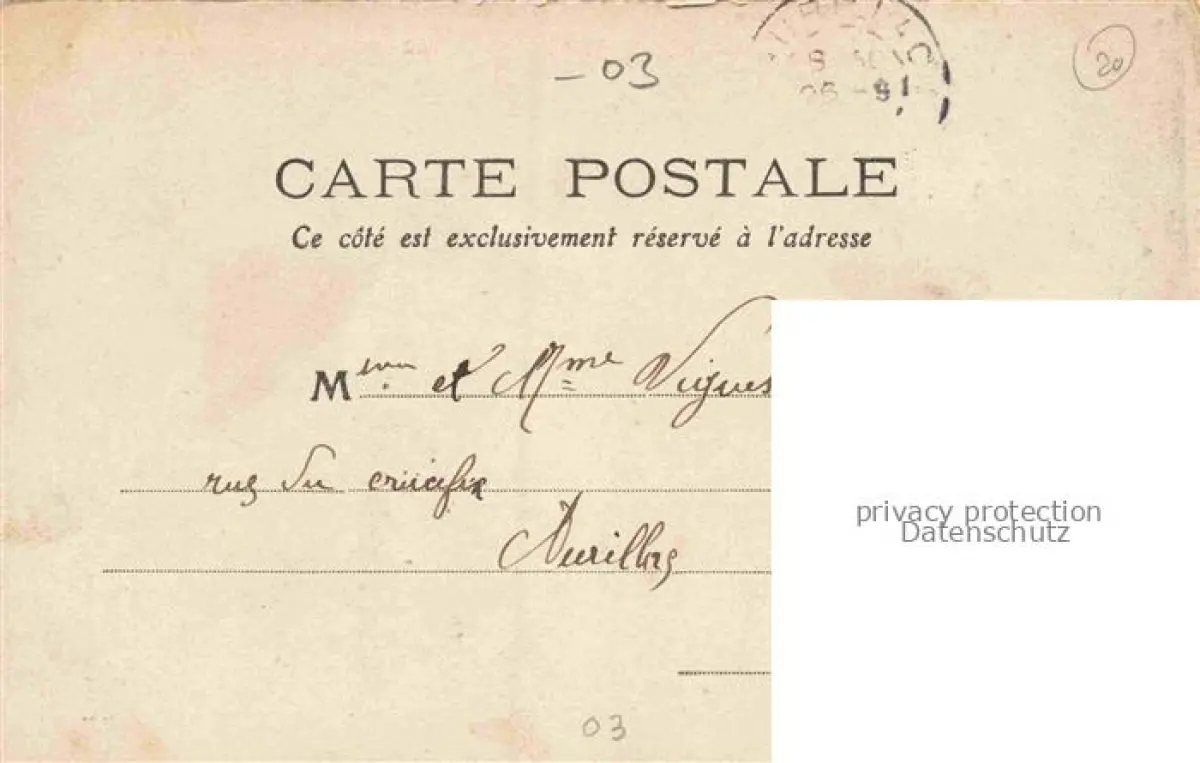 - 03
20
CARTE POSTALE
Ce côté est exclusivement réservé à l'adresse
M et Mme Vigues
rue du crucifix
Aurillac
privacy protection
Datenschutz
03